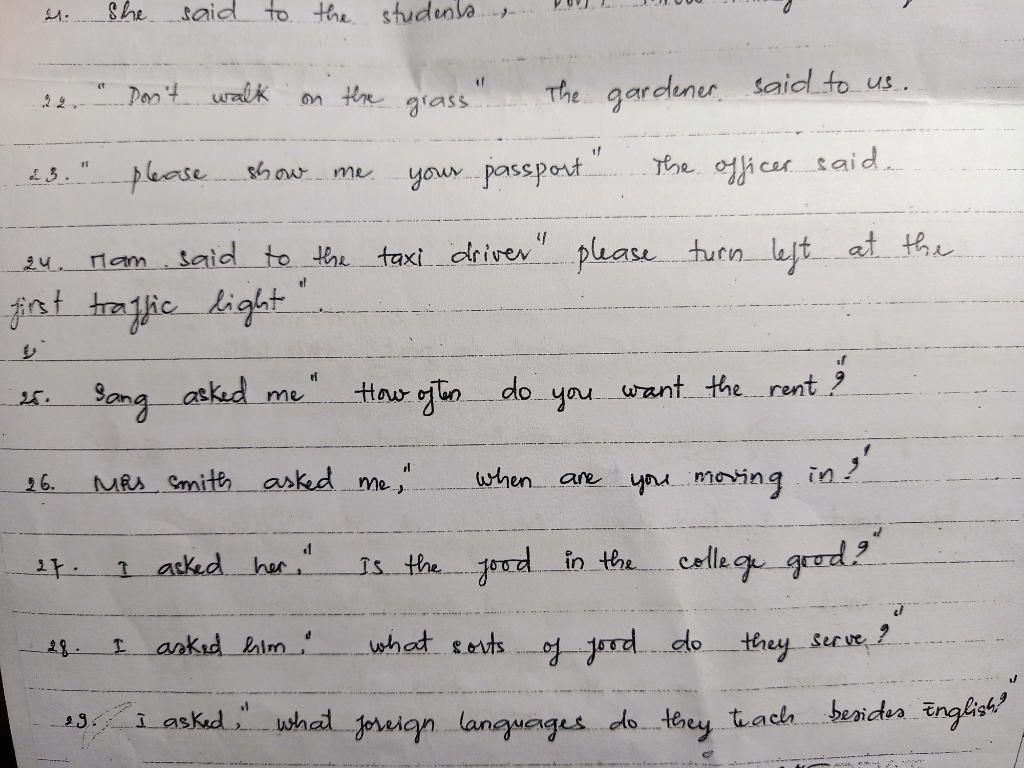 21. She said to the students,
22. " Don't walk on the grass" The gardener said to us.
23. " please show me your passport" The officer said.
24. Nam said to the taxi driver" please turn left at the
first traffic light".
25. Sang asked me" How often do you want the rent?"
26. MRs Smith asked me," when are you moving in?"
27. I asked her," Is the food in the college good?"
28. I asked him," what sorts of food do they serve?"
29. I asked," what foreign languages do they teach besides English?"